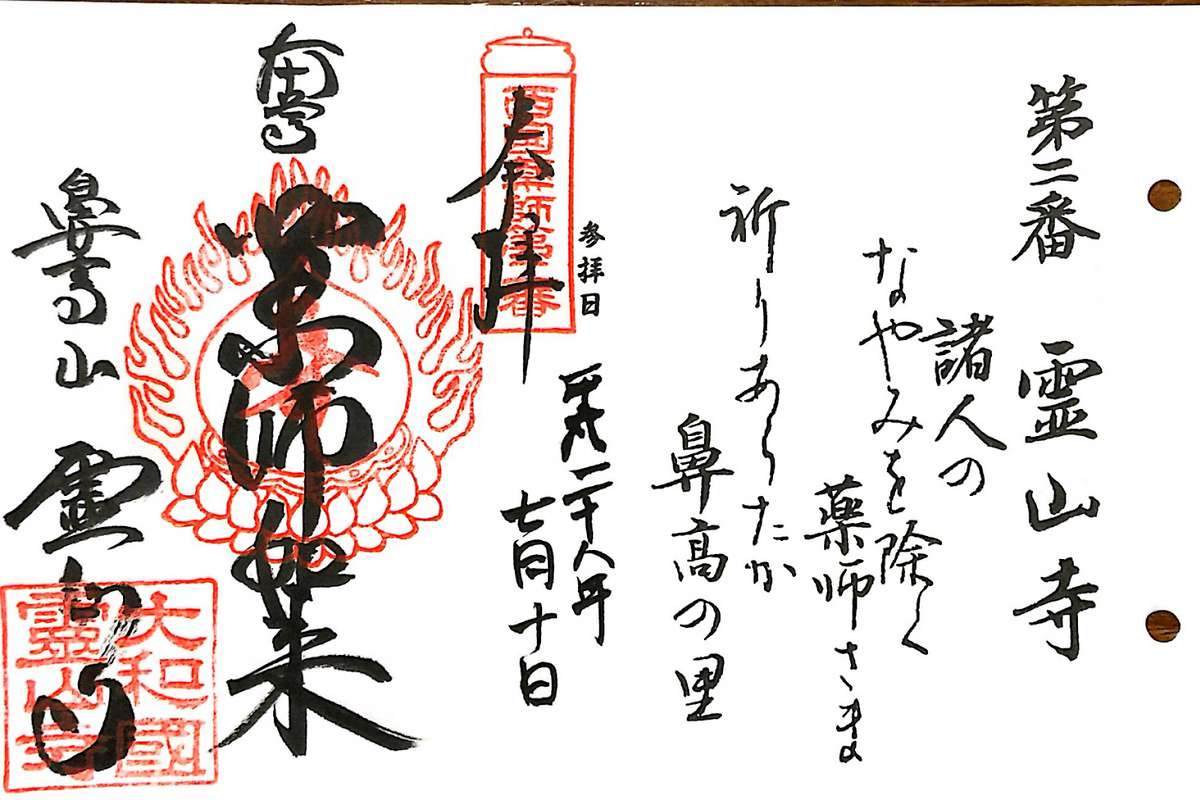 第二番 霊山寺
諸人の
なやみを除く
薬師さま
祈りあらたか
鼻高の里
参拝日
平成二十八年
七月十日
奉拝
西国薬師第二番
薬師如来
鼻高山 霊山寺
大和國
靈山寺